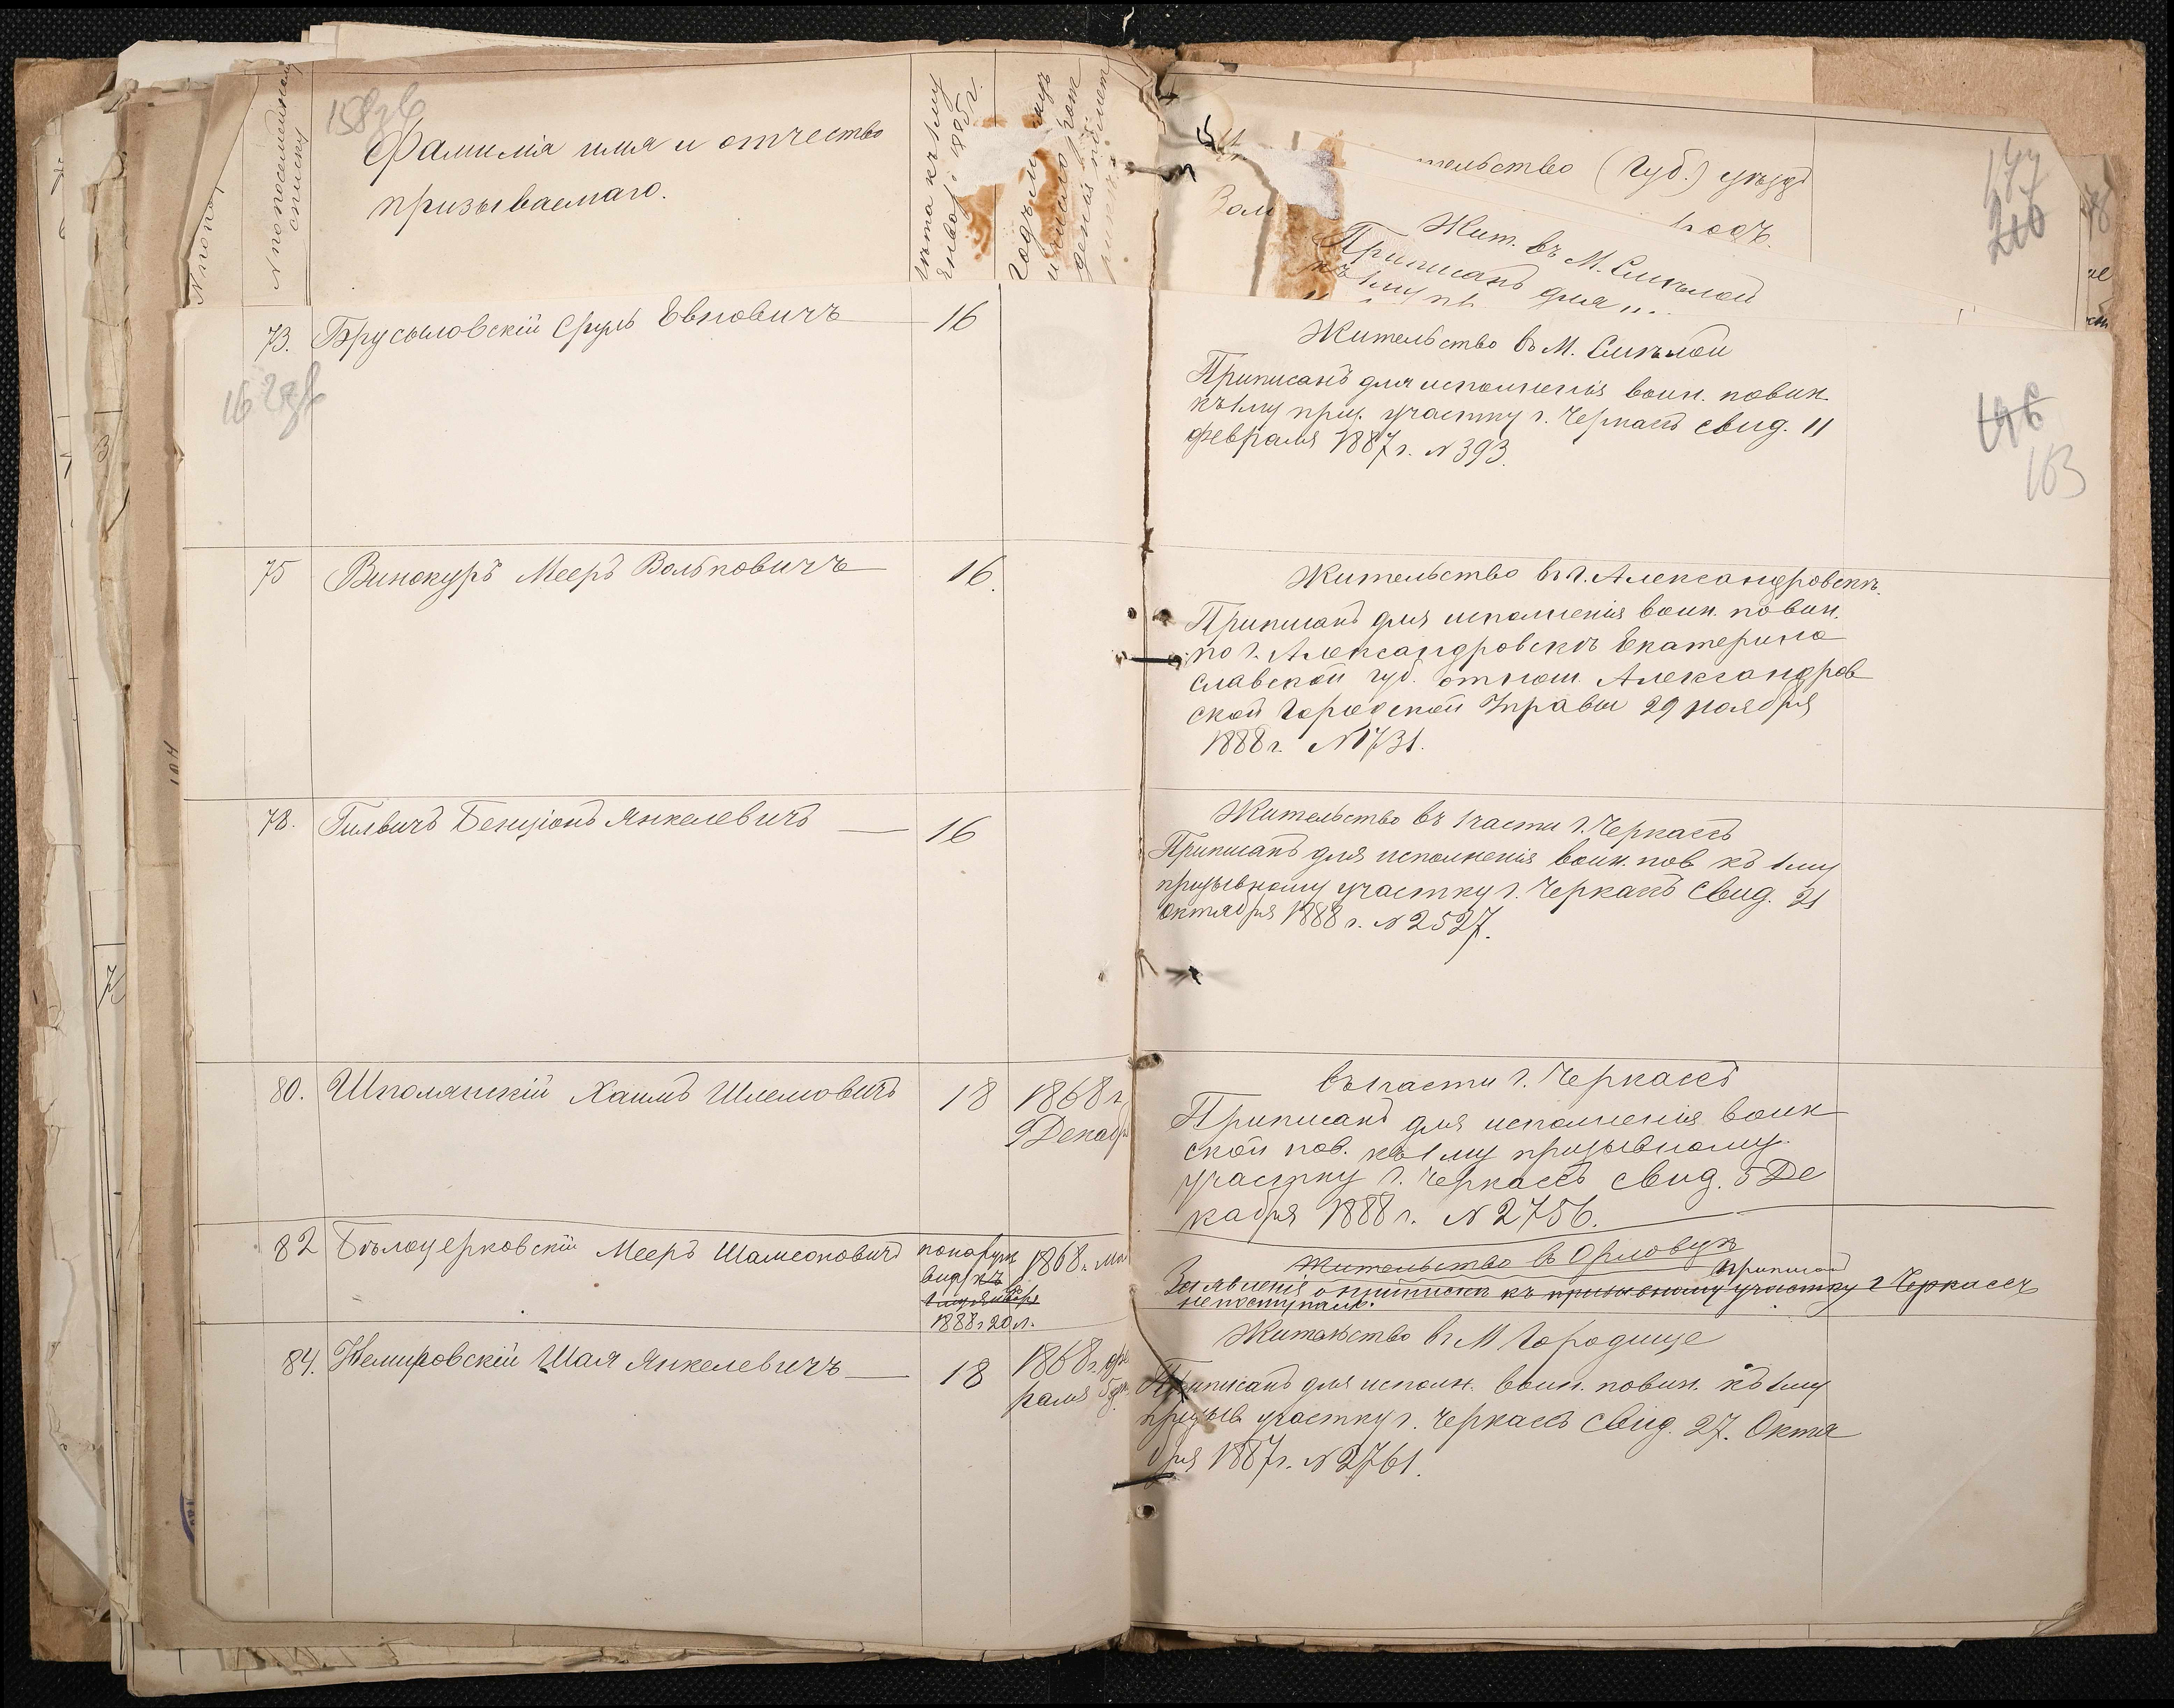 158зв
N по посемейному
списку
Фамилія имя и отчество
призываемаго.
лѣта къ 1му
Января 1885 г.
тельство (Губ.) уѣздъ
177
210
Жит. въ М. Смѣлой
Приписанъ для
73. Брусыловскій Сруль Евновичъ 16
162зв
Жительство въ М. Смѣлой
Приписанъ для исполненія воин. повин.
къ 1му приз. участку г. Черкассъ свид. 11
февраля 1887 г. N 393.
163
75 Винокуръ Мееръ Вольковичъ 16.
Жительство въ г. Александровскѣ.
Приписанъ для исполненія воин. повин.
по г. Александровскъ Екатерино
славской губ. отнош. Александров
ской Городской Управы 29 ноября
1888 г. N 1731.
78. Гилвичъ Бенціонъ Янкелевичъ — 16
Жительство въ 1 части г. Черкассъ
Приписанъ для исполненія воин. пов къ 1му
призывному участку г. Черкассъ свид. 21
октября 1888 г. N 2527.
80. Шполянскій Хаимъ Шлемовичъ 18 1868 г.
9 Декабр
въ 1 части г. Черкассъ
Приписанъ для исполненія воин
ской пов. къ 1му призывному
участку г. Черкассъ свид. 5 Де
кабря 1888 г. N 2756.
82 Бѣлоцерковскій Мееръ Шамсоновичъ по наружн
виду къ
1му Января
1888 г 20 л.
1868 г. Ма
Жительство въ Орловцѣ
Заявленія о припискѣ къ призывному участку г Черкассъ
не поступало.
84. Немировскій Шая Янкелевичъ — 18 1868 г. фев
раля
Жительство въ М Городище
Приписанъ для исполн. воин. повин. къ 1му
призыв участку г. Черкассъ свид. 27. Октя
бря 1887 г. N 2761.